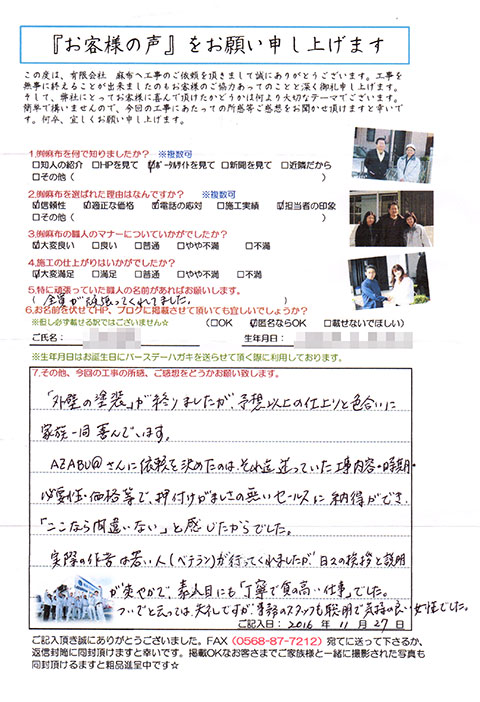 『お客様の声』をお願い申し上げます
この度は、有限会社　麻布へ工事のご依頼を頂きまして誠にありがとうございます。工事を
無事に終えることが出来ましたのもお客様のご協力あってのことと深く御礼申し上げます。
そして、弊社にとってお客様に喜んで頂けたかどうかは何より大切なテーマでございます。
簡単で構いませんので、今回の工事にあたっての所感等ご感想をお聞かせ頂けますと幸いで
す。何卒、宜しくお願い申し上げます。
1.㈲麻布を何で知りましたか？　※複数可
□知人の紹介　□HPを見て　☑ポータルサイトを見て　□新聞を見て　□近隣だから
□その他（　　　）
2.㈲麻布を選ばれた理由はなんですか？　※複数可
☑信頼性　☑適正な価格　☑電話の応対　□施工実績　☑担当者の印象
□その他（　　　）
3.㈲麻布の職人のマナーについていかがでしたか？
☑大変良い　□良い　□普通　□やや不満　□不満
4.施工の仕上がりはいかがでしたか？
☑大変満足　□満足　□普通　□やや不満　□不満
5.特に頑張っていた職人の名前があればお願いします。
（ 全員が頑張ってくれました。 ）
6.お名前を伏せてHP、ブログに掲載させて頂いても宜しいでしょうか？
※但し必ず載せる訳ではございません☆　（□OK　☑匿名ならOK　□載せないでほしい）
ご氏名：　　　生年月日：
※生年月日はお誕生日にバースデーハガキを送らせて頂く際に利用しております。
7.その他、今回の工事の所感、ご感想をどうかお願い致します。
「外壁の塗装」が終りましたが、予想以上の仕上りと色合いに
家族一同喜んでいます。
AZABU@さんに依頼を決めたのは、それ迄迷っていた工事内容・時期・
必要性・価格等で、押付けがましさの無いセールスに納得ができ、
「ここなら間違いない」と感じたからでした。
実際の作業は若い人（ベテラン）が行ってくれましたが日々の挨拶と説明
が爽やかで、素人目にも「丁寧で質の高い仕事」でした。
ついでと云っては失礼ですが、事務のスタッフも聡明で気持の良い女性でした。
ご記入日：2016 年 11 月 27 日
ご記入頂き誠にありがとうございました。FAX（0568-87-7212）宛てに送って下さるか、
返信封筒に同封頂けますと幸いです。掲載OKなお客さまでご家族様と一緒に撮影された写真も
同封頂けるますと粗品進呈中です☆